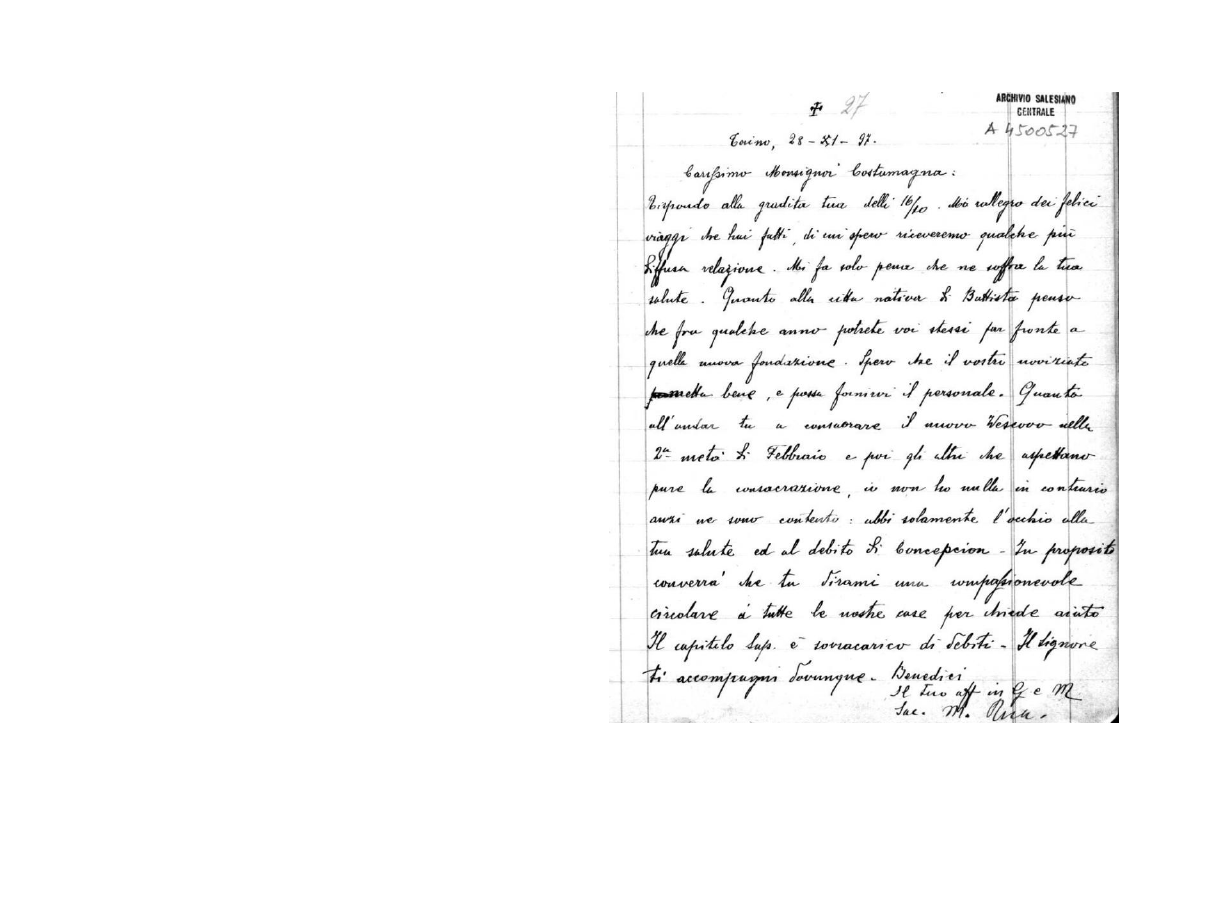 ARCHIVIO SALESIANO
CENTRALE
A 4500527
✝ 27
Torino, 28 - XI - 97.
Carissimo Monsignor Costamagna:
Rispondo alla gradita tua delli 16/10. Mi rallegro dei felici
viaggi che hai fatti, di cui spero riceveremo qualche più
diffusa relazione. Mi fa solo pena che ne soffra la tua
salute. Quanto alla citta nativa di Battista penso
che fra qualche anno potrete voi stessi far fronte a
quella nuova fondazione. Spero che il vostri noviziato
metta bene, e possa fornirvi il personale. Quanto
all'andar tu a consacrare il nuovo Vescovo nella
2ª metà di Febbraio e poi gli altri che aspettano
pure la consacrazione, io non ho nulla in contrario
anzi ne sono contento: abbi solamente l'occhio alla
tua salute ed al debito di Concepcion - In proposito
converrà che tu dirami una compassionevole
circolare à tutte le nostre case per chiede aiuto
Il capitolo Sup. è sovracarico di debiti - Il Signore
ti accompagni dovunque - Benedici
Il tuo aff in G e M
Sac. M. Rua.